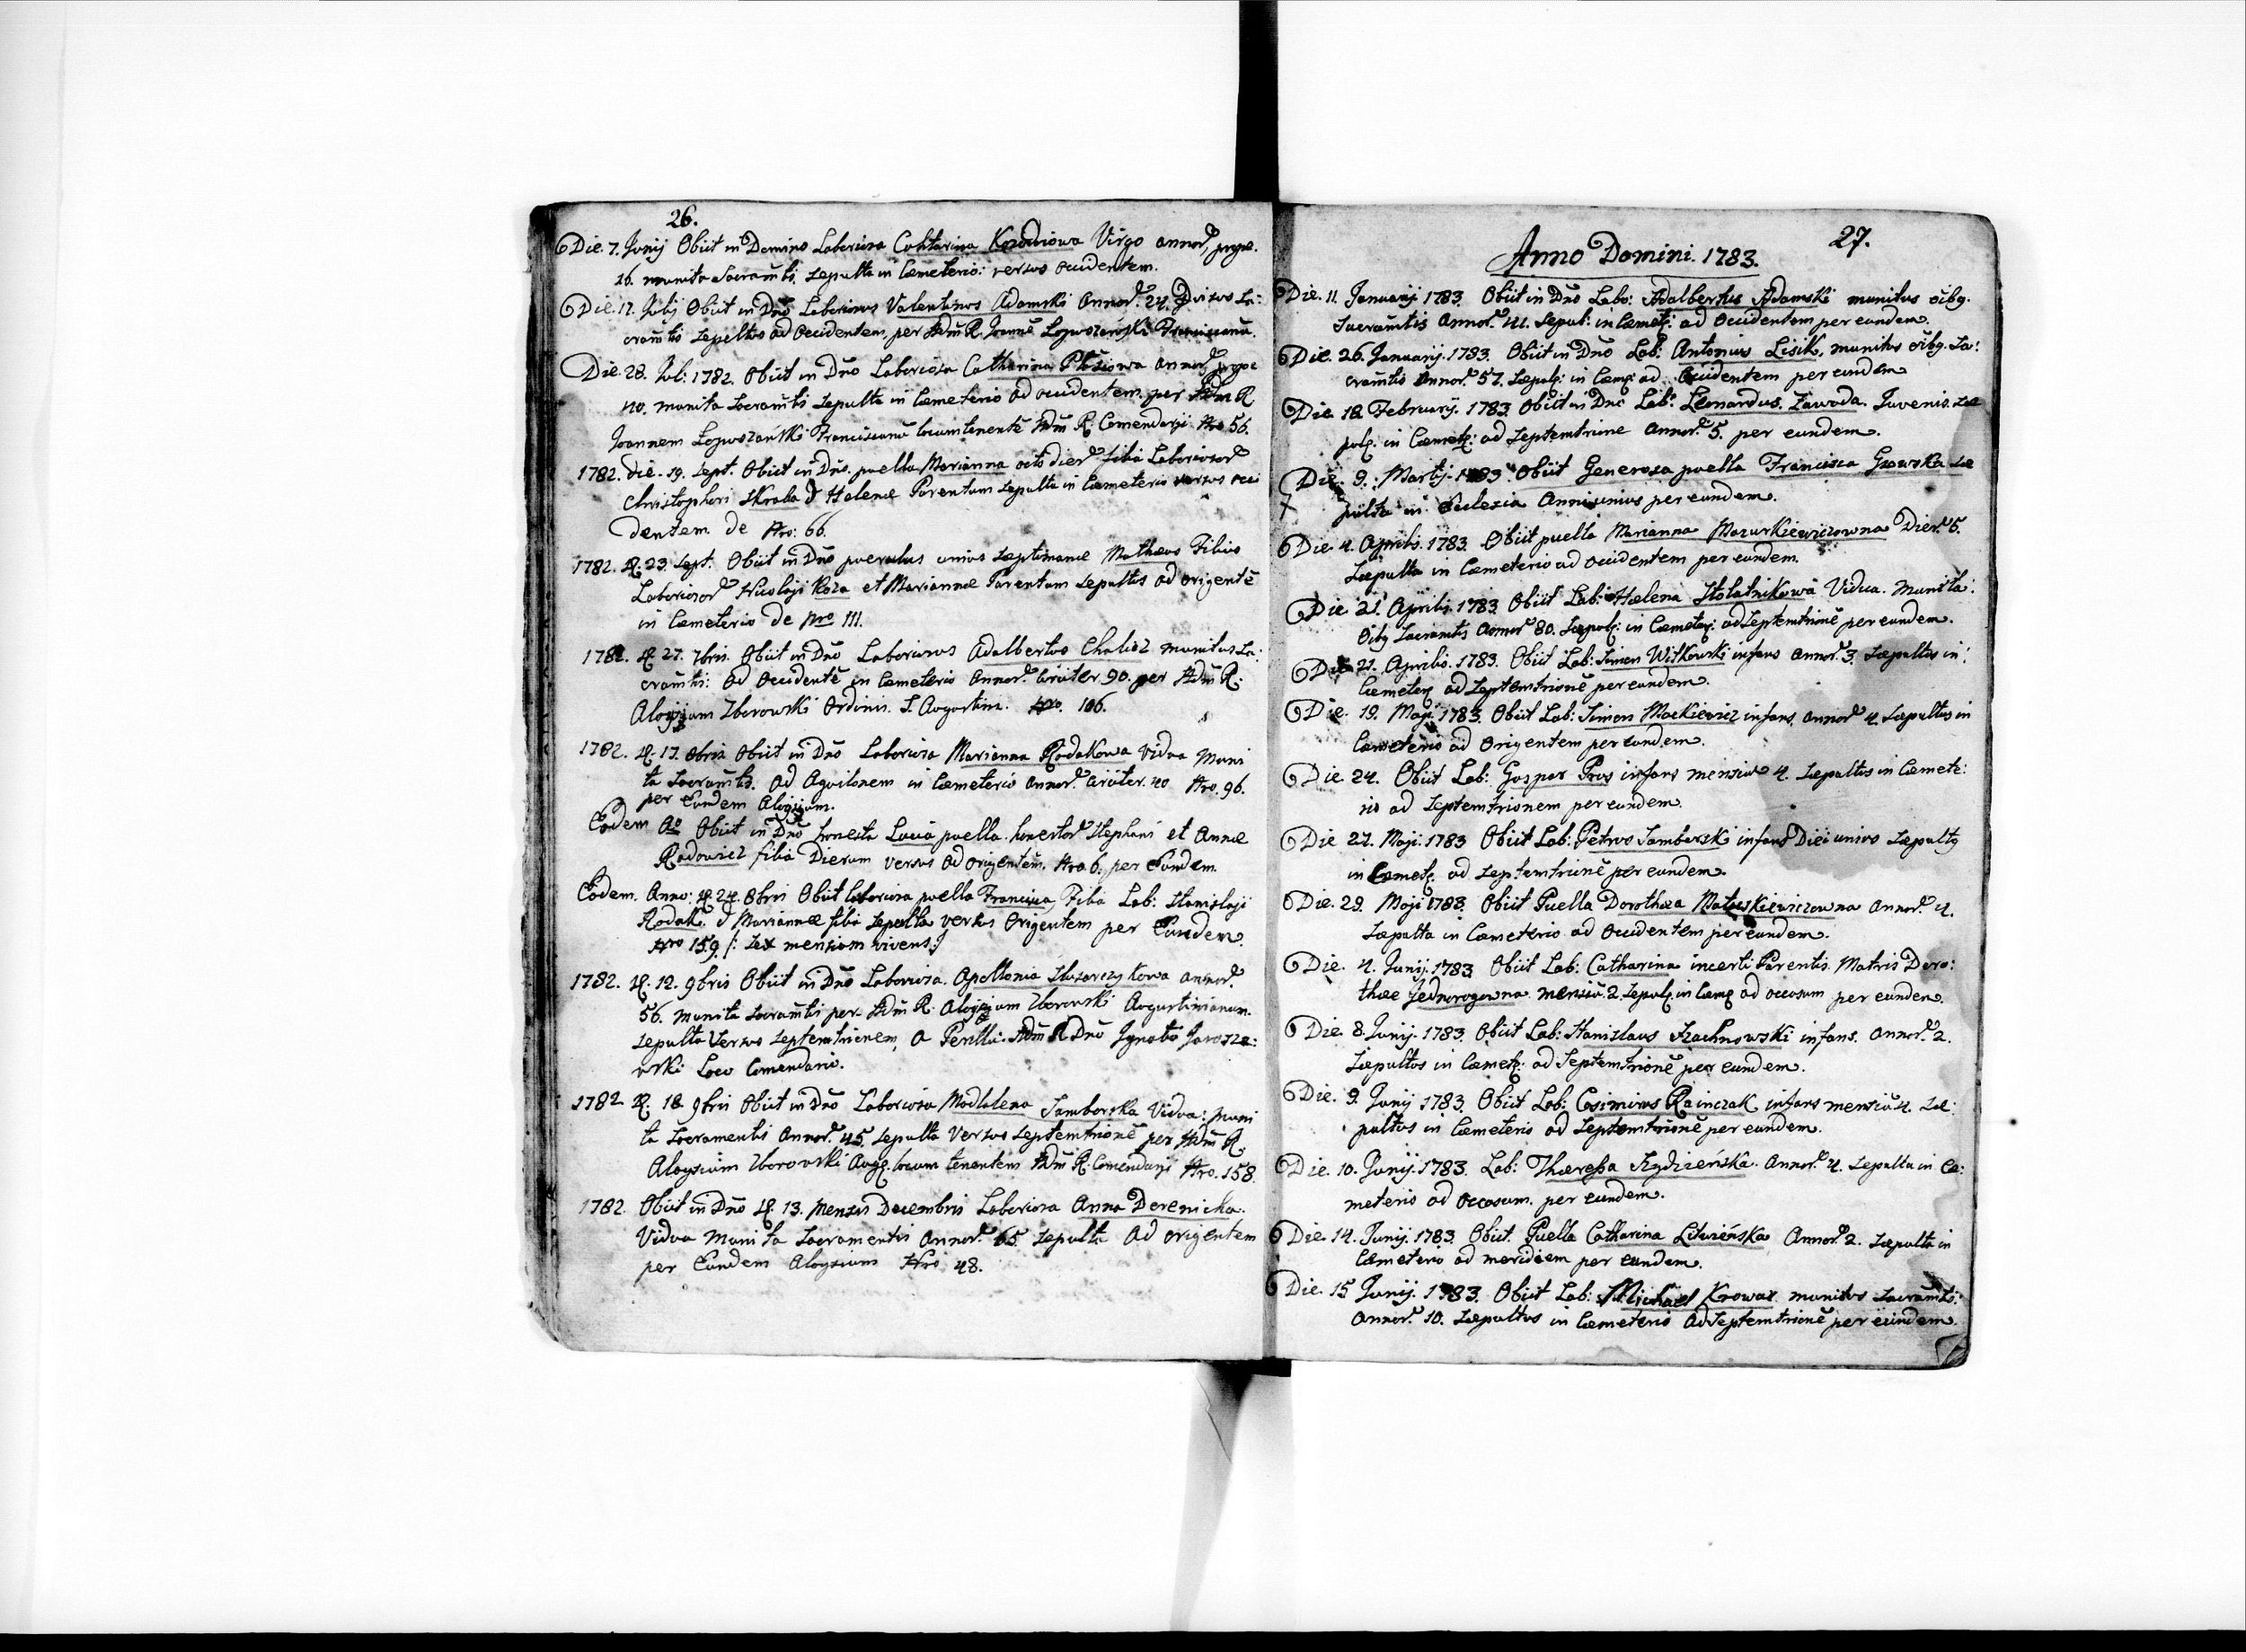 26.
Die. 7. Junij Obiit in Domino Laboriosa Catharina Virgo annor. prope.
16. munita Sacramtis. sepulta in Cæmeterio: versus occidentem.
Die. 17. Julij Obiit in Dno Laboriosus Valentinus Adamski Annor. 24. provisus Sa:
cramtis sepultus ad Occidentem, per Adm R. Joannē Łopuszański Franciscanū.
Die. 28. Jul: 1782. Obiit in Dno Laboriosa Catharina annor. prope
40. munita Sacramtis sepulta in Cæmeterio ad occidentem. per Adm R
Joannem Łopuszański Franciscanū locumtenentē Adm R. Comendarij Nro 56.
1782. die. 19. Sept. Obiit in Dno. puella Marianna octo dier. filia Laboriosor.
Christophori Skraba & Helenæ Parentum sepulta in Cæmeterio versus occi
dentem. de Nro: 66.
1782. D. 23. Sept. Obiit in Dno puerulus unius septimanæ Mathæus Filius
Laboriosor. Nicolaji Koza et Mariannæ Parentum sepultus ad origentē
in Cæmeterio de Nro 111.
1782. D. 27. 7bris. Obiit in Dno Laboriosus Adalbertus Chalisz munitus Sa:
cramtis: ad Occidentē in Cæmeterio Annor. circiter 90. per Adm R:
Aloysium Zborowski Ordinis. S. Augustini. Nro. 106.
1782. D. 17. 8bris Obiit in Dno Laboriosa Marianna Rodakowa vidua Muni
ta Sacramtis. ad Aquilonem in Cæmeterio annor. circiter. 40 Nro. 96.
per Eundem Aloysium.
Eodem Ao Obiit in Dno honesta Lucia puella. honestor. Stephani et Annæ
Radowicz filia Dierum versus ad origentem. Nro 6. per Eundem.
Eodem. Anno: D. 24. 8bris Obiit laboriosa puella Francisca Filia Lab: Stanislaji
Rodak. & Mariannæ filia sepulta versus Origentem per Eundem
Nro 159. /: Sex mensium vivens:/
1782. D. 12. 9bris Obiit in Dno Laboriosa. Apollonia Slusarczykowa annor.
56. munita Sacramtis per Adm R. Aloysium Zborowski Augustinianum.
sepulta versus septemtrionem, a Perilli. Adm R Dno Ignatio Jarosze:
wski Loco Comendario.
1782 D. 18 9bris Obiit in Dno Laboriosa Madalena Samborska Vidua: muni
ta Sacramentis Annor. 45 sepulta versus septemtrionē per Adm R
Aloysium Zborowski Aug. locum tenentem Adm R. Comendarij Nro. 158.
1782. Obiit in Dno D. 13. Mensis Decembris Laboriosa Anna Derenicka.
Vidua Munita Sacramentis Annor. 65. sepulta ad origentem
per Eundem Aloysium Nro 48.
27.
Anno Domini. 1783.
Die. 11. Januarij 1783. Obiit in Dno Labo: Adalbertus Adamski munitus oibg.
Sacramtis Annor. 41. Sepul: in Cæmet: ad Occidentem per eundem.
Die. 26. Januarij. 1783. Obiit in Dno Lab: Antonius Lisik, munitus oibg. Sa:
cramtis Annor. 57. Sæpul: in Cæm: ad Occidentem per eundem
Die. 18 February. 1783. Obiit in Dno Lab: Leonardus. Zawoda. Juvenis. sæ
pul. in Cæmet: ad Septemtrione Annor. 5. per eundem.
Die. 9. Martij. 1783. Obiit Generosa puella Francisca sæ
pulta in Ecclesia Anni unius per eundem.
Die. 4. Aprilis. 1783. Obiit puella Marianna Mazurkiewiczowna Dier. 5.
Sæpulta in Cæmeterio ad occidentem per eundem.
Die 21. Aprilis. 1783. Obiit Lab: Helena Stolatnikowa Vidua. Munita:
Oibg Sacramtis Annor. 80. Sæpul: in Cæmeter: ad Septemtrionē per eundem.
Die. 21. Aprilis. 1783. Obiit Lab: Simon Witkowski infans annor. 3. Sæpultus in:
Cæmeter ad Septemtrionē per eundem.
Die. 19. Maji 1783. Obiit Lab: Simon Mackiewicz infans. annor. 4. Sæpultus in
Cæmeterio ad Origentem per eundem.
Die 24. Obiit Lab: Gaspar Pros infans mensium 4. Sæpultus in Cæmete:
rio ad Septemtrionem per eundem.
Die 27. Maji. 1783 Obiit Lab: Petrus Samborski infans Diei unius Sæpultg
in Cæmet: ad Septemtrionē per eundem.
Die. 29. Maji 1783. Obiit Puella Dorothæa Matuskiewiczowna Annor. 4.
Sæpulta in Cæmeterio ad Occidentem per eundem.
Die. 4. Junij. 1783 Obiit Lab: Catharina incerti Parentis. Matris Doro:
thæ Jednorogowna mensiū. 2. Sepul. in Cæme ad occasum per eundem.
Die. 8. Junij. 1783. Obiit Lab: Stanislaus Szachnowski infans. Annor. 2.
Sæpultus in Cæmet: ad Septemtrionē per eundem.
Die. 9. Junij 1783. Obiit Lab: Casimirus Rainczak infans mensiū 4. Sæ:
pultus in Cæmeterio ad Septemtrionē per eundem.
Die. 10. Junij. 1783. Lab: Theressa Szydzieńska. Annor. 4. Sepulta in Cæ:
meterio ad occasum. per eundem.
Die. 14. Junij. 1783. Obiit. Puella Catharina Litwińska Annor. 2. Sæpulta in
Cæmeterio ad meridiem per eundem.
Die. 15 Junij. 1783. Obiit Lab: Michael Krowas. munitus Sacramtis:
Annor. 10. Sæpultus in Cæmeterio Ad Septemtrionē per eundem.